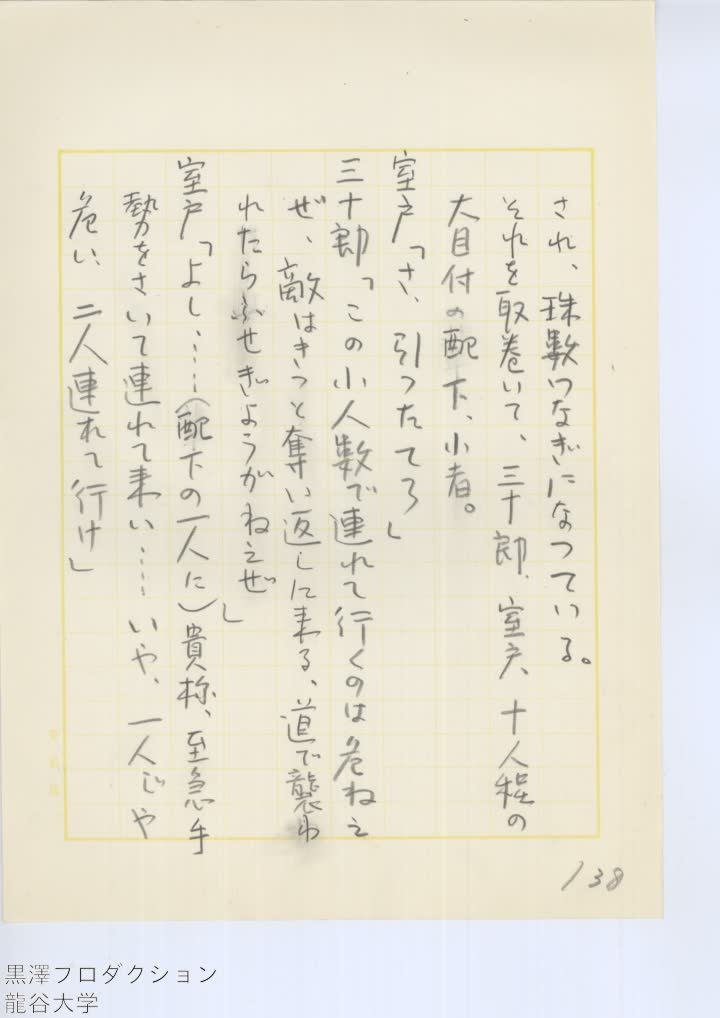 され、珠数つなぎになつている。
それを取巻いて、三十郎、室戸、十人程の
大目付の配下、小者。
室戸「さ、引つたてろ」
三十郎「この小人数で連れて行くのは危ねえ
ぜ、敵はきつと奪い返しに来る、道で襲わ
れたらふせぎようがねえぜ」
室戸「よし……(配下の一人に)貴様、至急手
勢をさいて連れて来い……いや、一人じや
危い、二人連れて行け」
138
黒澤プロダクション
龍谷大学